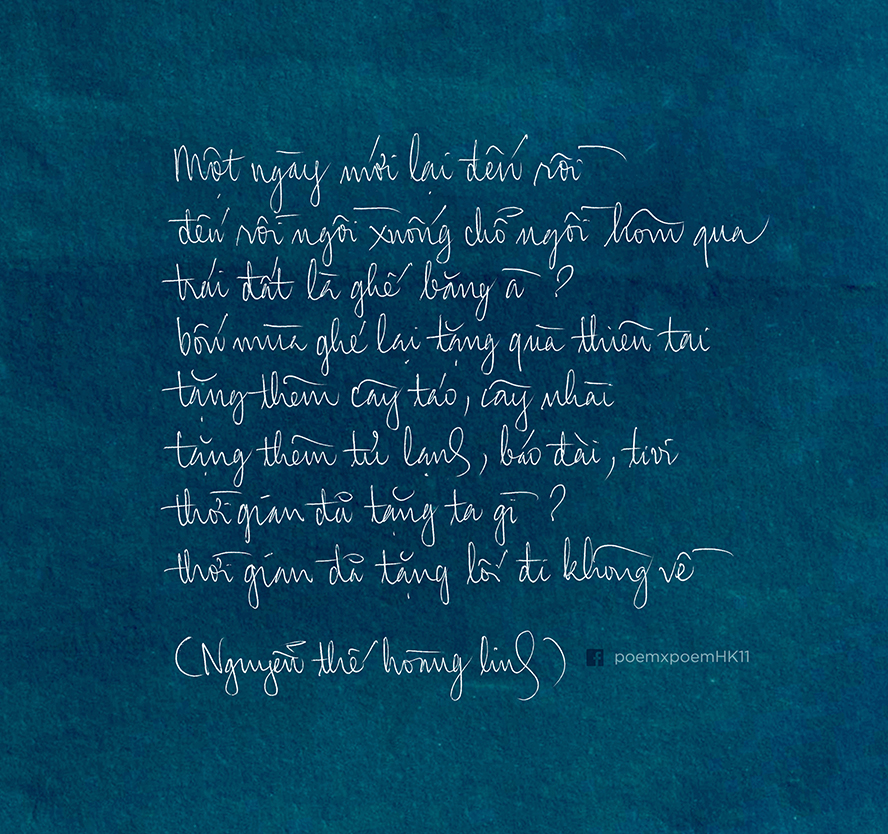 Một ngày mới lại đến rồi
đến rồi ngồi xuống chỗ ngồi hôm qua
trái đất là ghế băng à ?
bốn mùa ghé lại tặng quà thiên tai
tặng thêm cây táo, cây nhài
tặng thêm tủ lạnh, báo đài, tivi
thời gian đã tặng ta gì ?
thời gian đã tặng lối đi không về
(Nguyễn thế hoàng linh)
poemxpoemHK11